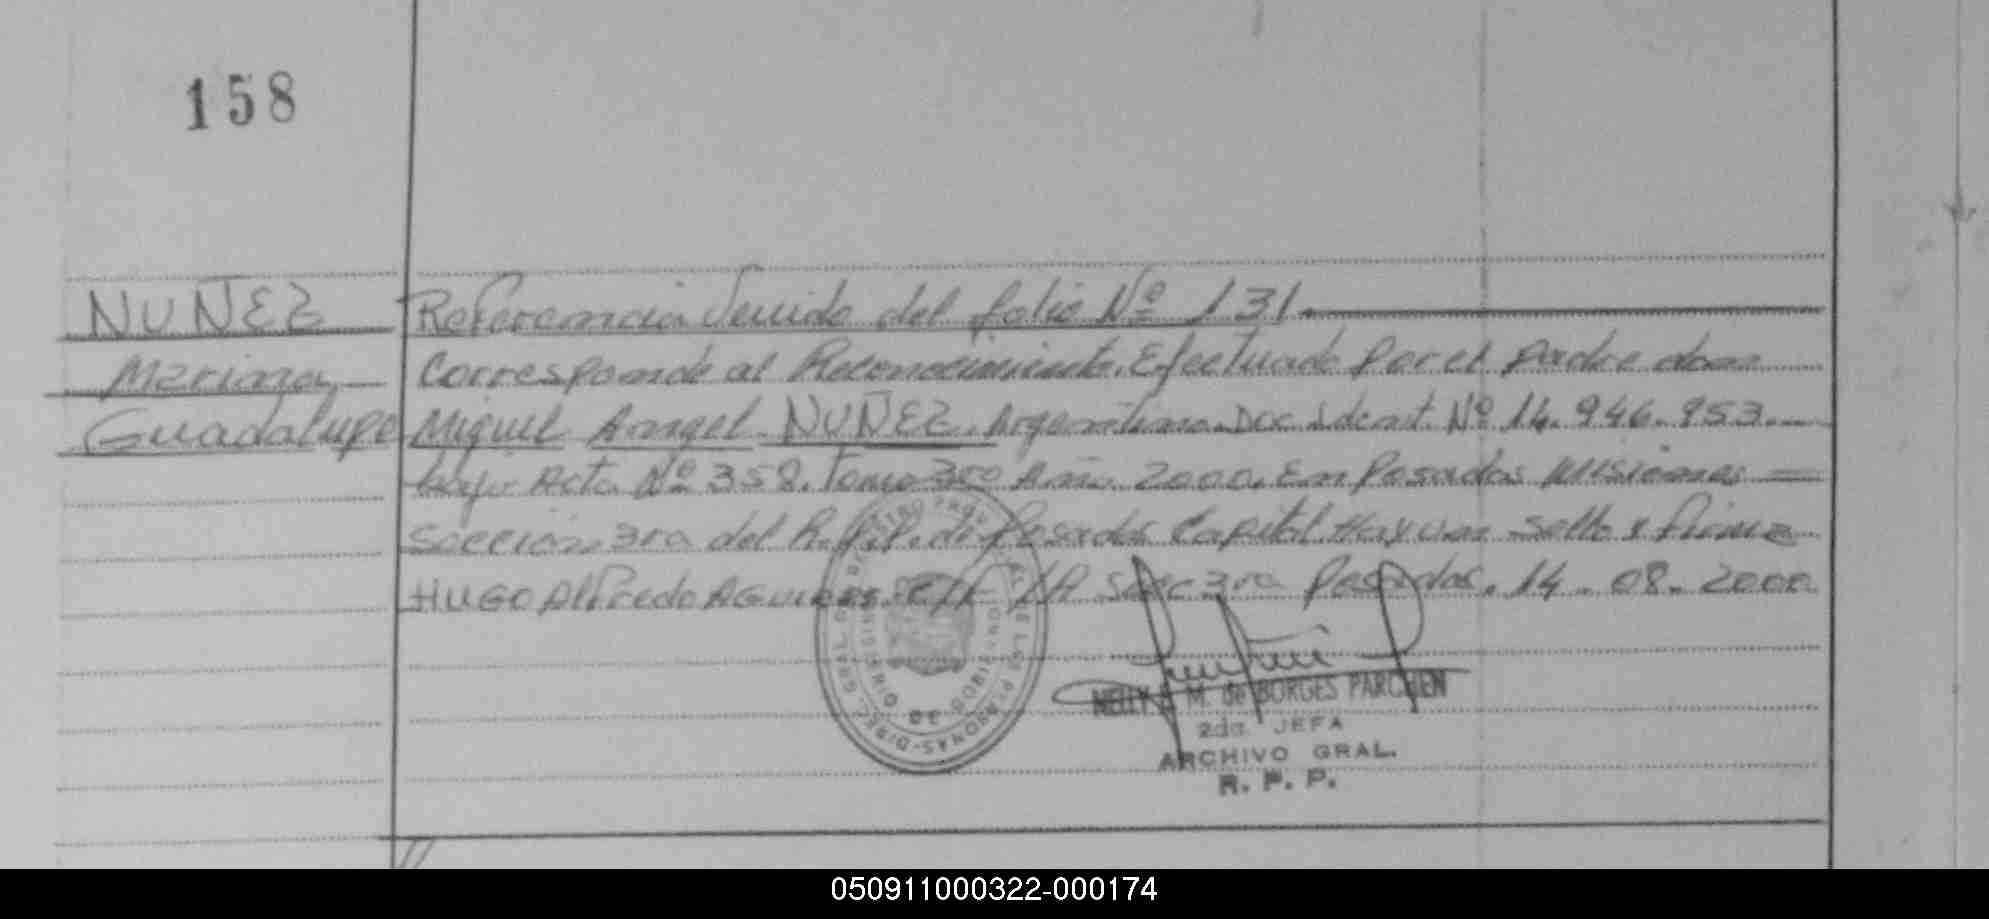 158
NUÑEZ
Mariana
Guadalupe
Referencia Venida del folio Nº 131.
Corresponde al Reconocimiento. Efectuado Por el Padre don
Miguel Angel NUÑEZ. Argentino. Doc. Ident. Nº 14.946.953.
bajo Acta Nº 358. Tomo 3ro Año 2000. En Posadas Misiones =
Sección 3ra del R.P.P. de Posadas Capital. Hay un sello y firma
HUGO Alfredo Aguirre. Secc 3ra Posadas. 14-08-2000
NELLY M. de BORGES PARCHEN
2da. JEFA
ARCHIVO GRAL.
R. P. P.
050911000322-000174